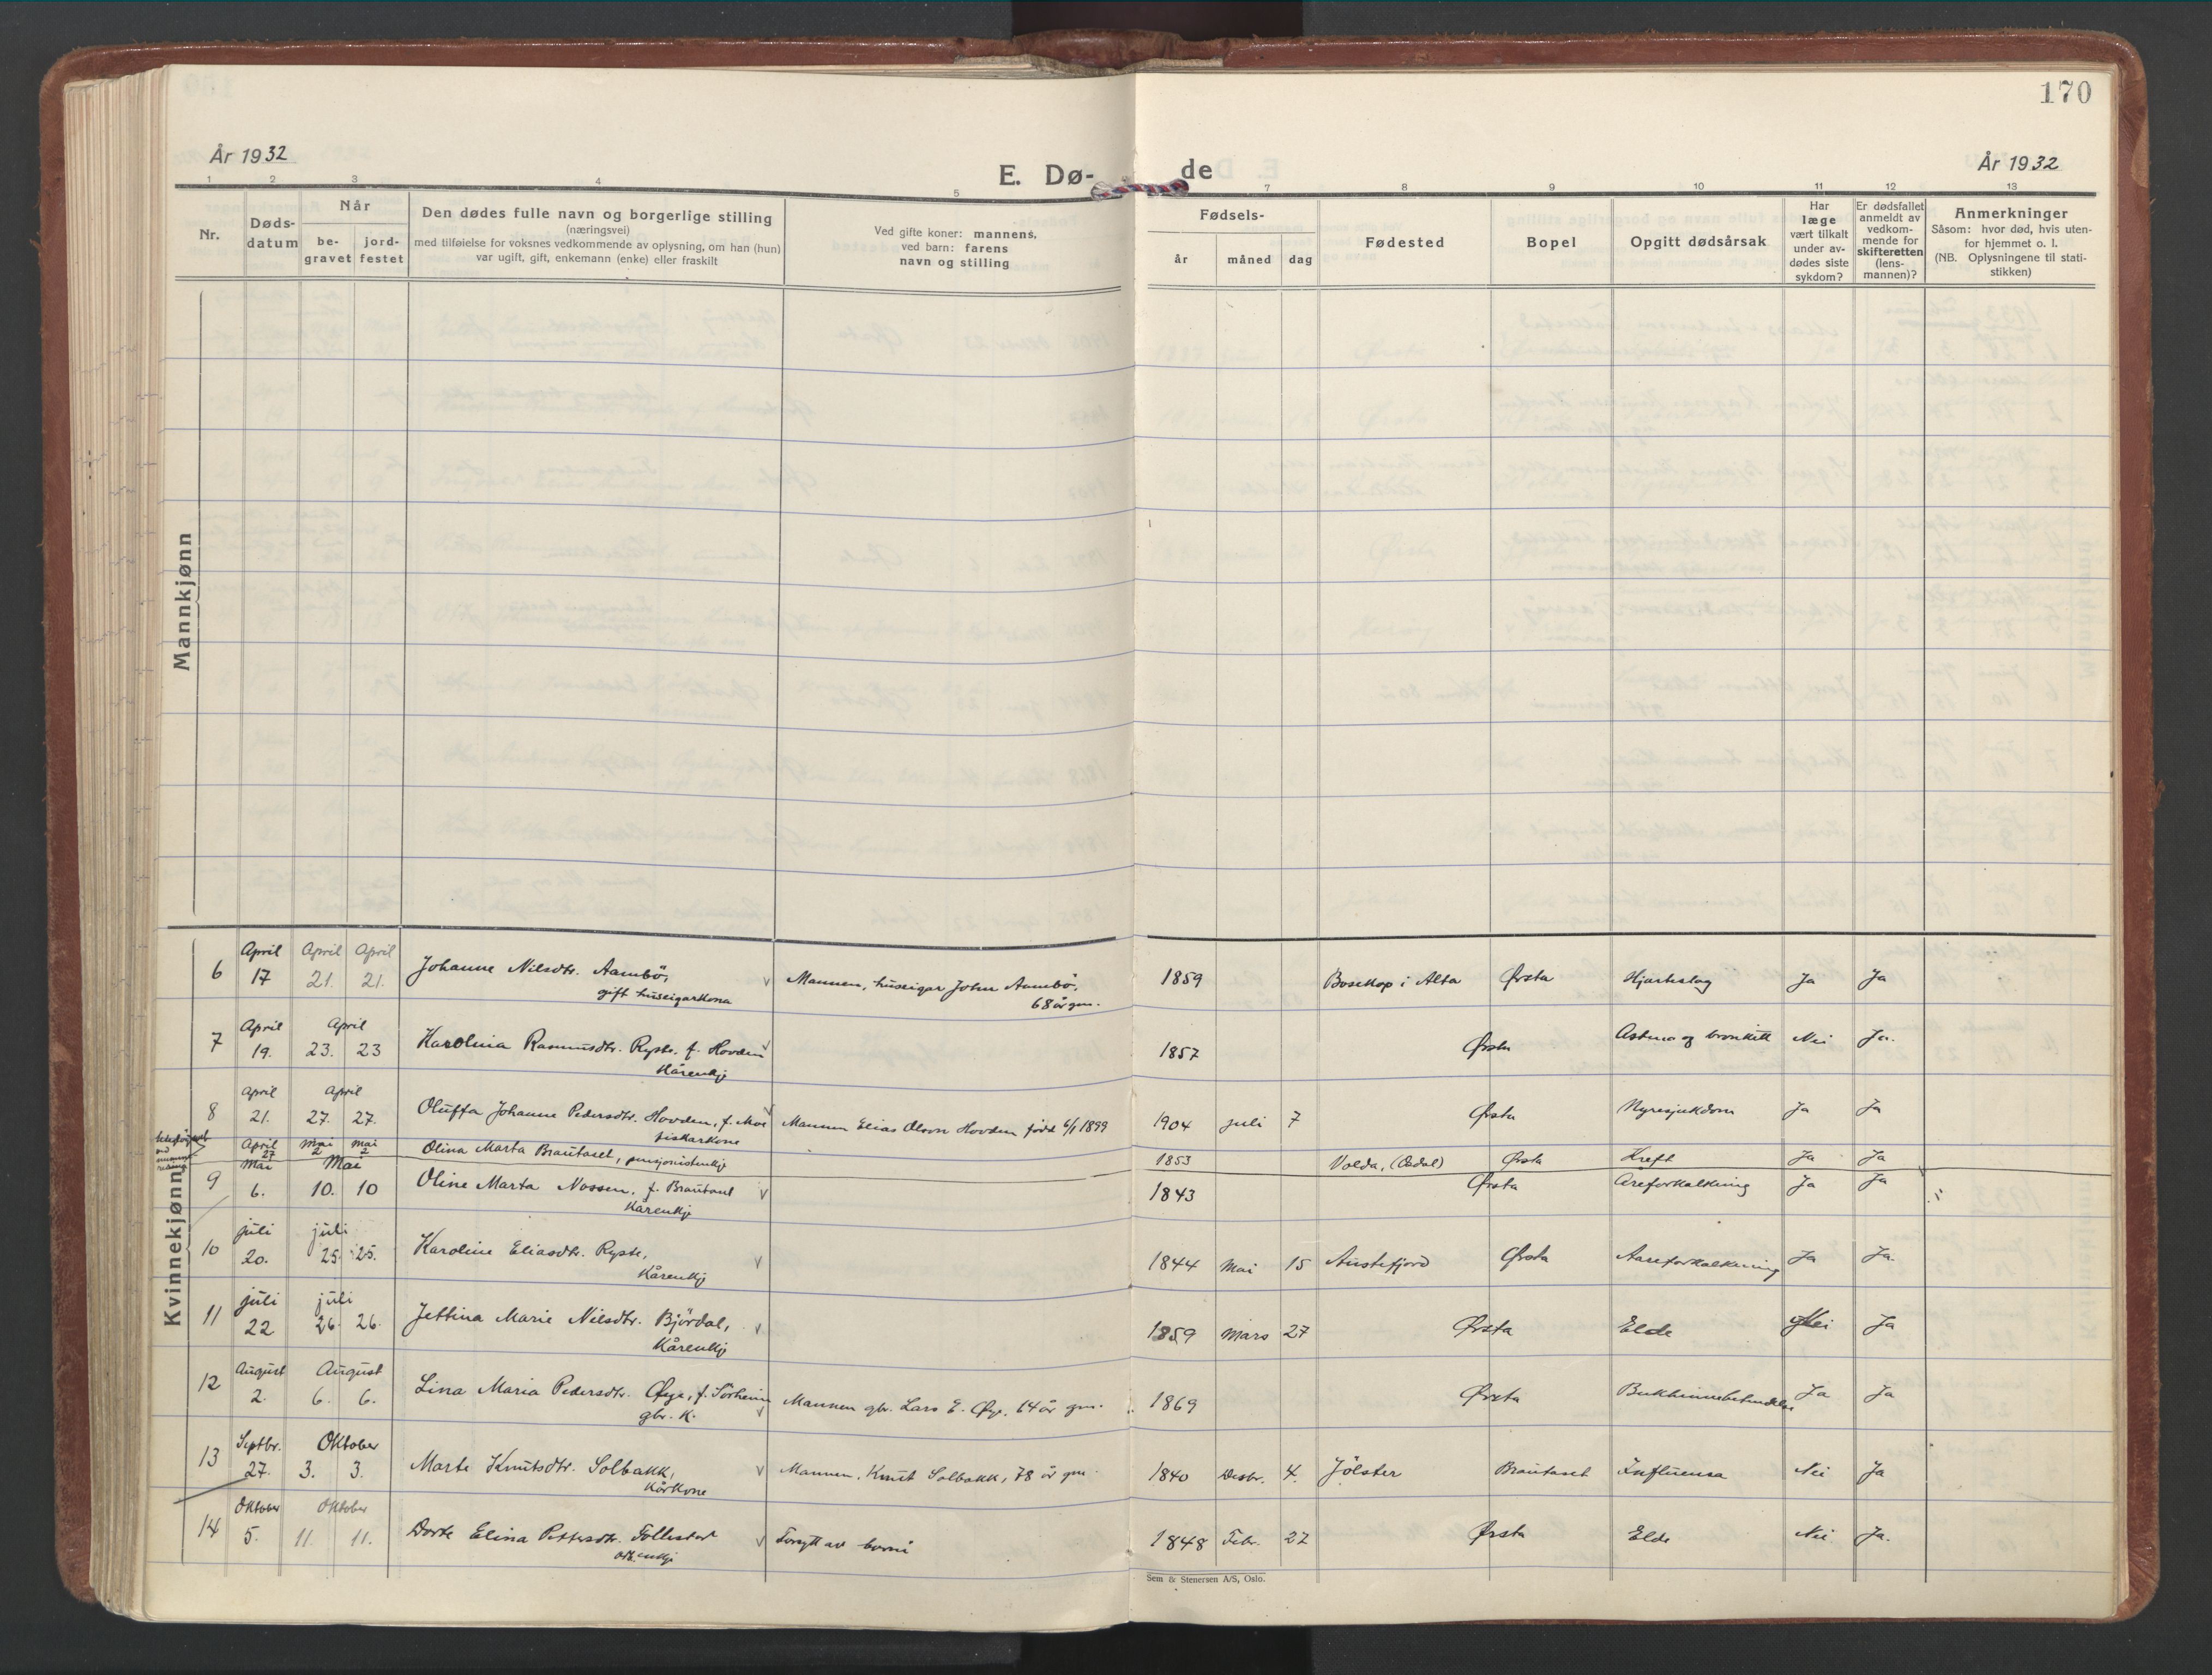 170
År 1932
E. Dø-
de
År 1932
1 2 3 4 5 7 8 9 10 11 12 13
Nr.
Døds-
datum
Når
be-
gravet
jord-
festet
Den dødes fulle navn og borgerlige stilling
(næringsvei)
med tilføielse for voksnes vedkommende av oplysning, om han (hun)
var ugift, gift, enkemann (enke) eller fraskilt
Ved gifte koner: mannens,
ved barn: farens
navn og stilling
Fødsels-
år måned dag
Fødested
Bopel
Opgitt dødsårsak
Har
læge
vært tilkalt
under av-
dødes siste
sykdom?
Er dødsfallet
anmeldt av
vedkom-
mende for
skifteretten
(lens-
mannen)?
Anmerkninger
Såsom: hvor død, hvis uten-
for hjemmet o. l.
(NB. Oplysningene til stati-
stikken)
Mannkjønn
Kvinnekjønn
April April April
6 17 21. 21. Johanne Nilsdtr. Aambö, v Mannen, huseigar John Aambö, 1859 Bosekop i Alta Ørsta Hjarteslag Ja Ja
gift huseigarkona 68 år gm.
April April
7 19. 23. 23 Karolina Rasmusdtr. Ryste, f. Hovden v 1857 Ørsta Astma og bronkitt Nei Ja.
Kårenkje
April April
8 21. 27. 27. Oluffa Johanne Pedersdtr. Hovden, f. Moe v Mannen Elias Olson Hovden född 6/1 1899 1904 juli 7 Ørsta Nyresjukdom Ja Ja
fiskarkone
April 27 Mai 2 Mai 2 Olina Marta Brautaset, pensjonistenkje 1853 Volda, (Osdal) Ørsta Kreft Ja Ja
Mai Mai
9 6. 10. 10 Oline Marta Nossen, f. Brautaset v 1843 Ørsta Åreforkalkning Ja Ja
Kårenkje
juli juli
10 20. 25. 25. Karoline Eliasdtr. Ryste, v 1844 Mai 15 Austefjord Ørsta Aareforkalkning Ja Ja.
Kårenkje
juli juli
11 22 26. 26. Jettina Marie Nilsdtr. Björdal, v 1859 Mars 27 Ørsta Elde Nei Ja
Kårenkje
August August
12 2. 6. 6. Lina Maria Pedersdtr. Øye, f. Sörheim v Mannen gbr. Lars E. Øye, 64 år gm. 1869 Ørsta Bukhinnebetendelse Ja Ja
gbr. k.
Septbr. Oktober
13 27. 3. 3. Marte Knutsdtr. Solbakk, v Mannen, Knut Solbakk, 78 år gm. 1840 Desbr. 4. Jölster Brautaset Influensa Nei Ja
Kårkone
Oktober Oktober
14 5. 11. 11. Dorte Elina Pettersdtr. Follestad v Forsytt av borni 1848 Febr. 27 Ørsta Elde Nei Ja.
Sem & Stenersen A/S, Oslo.